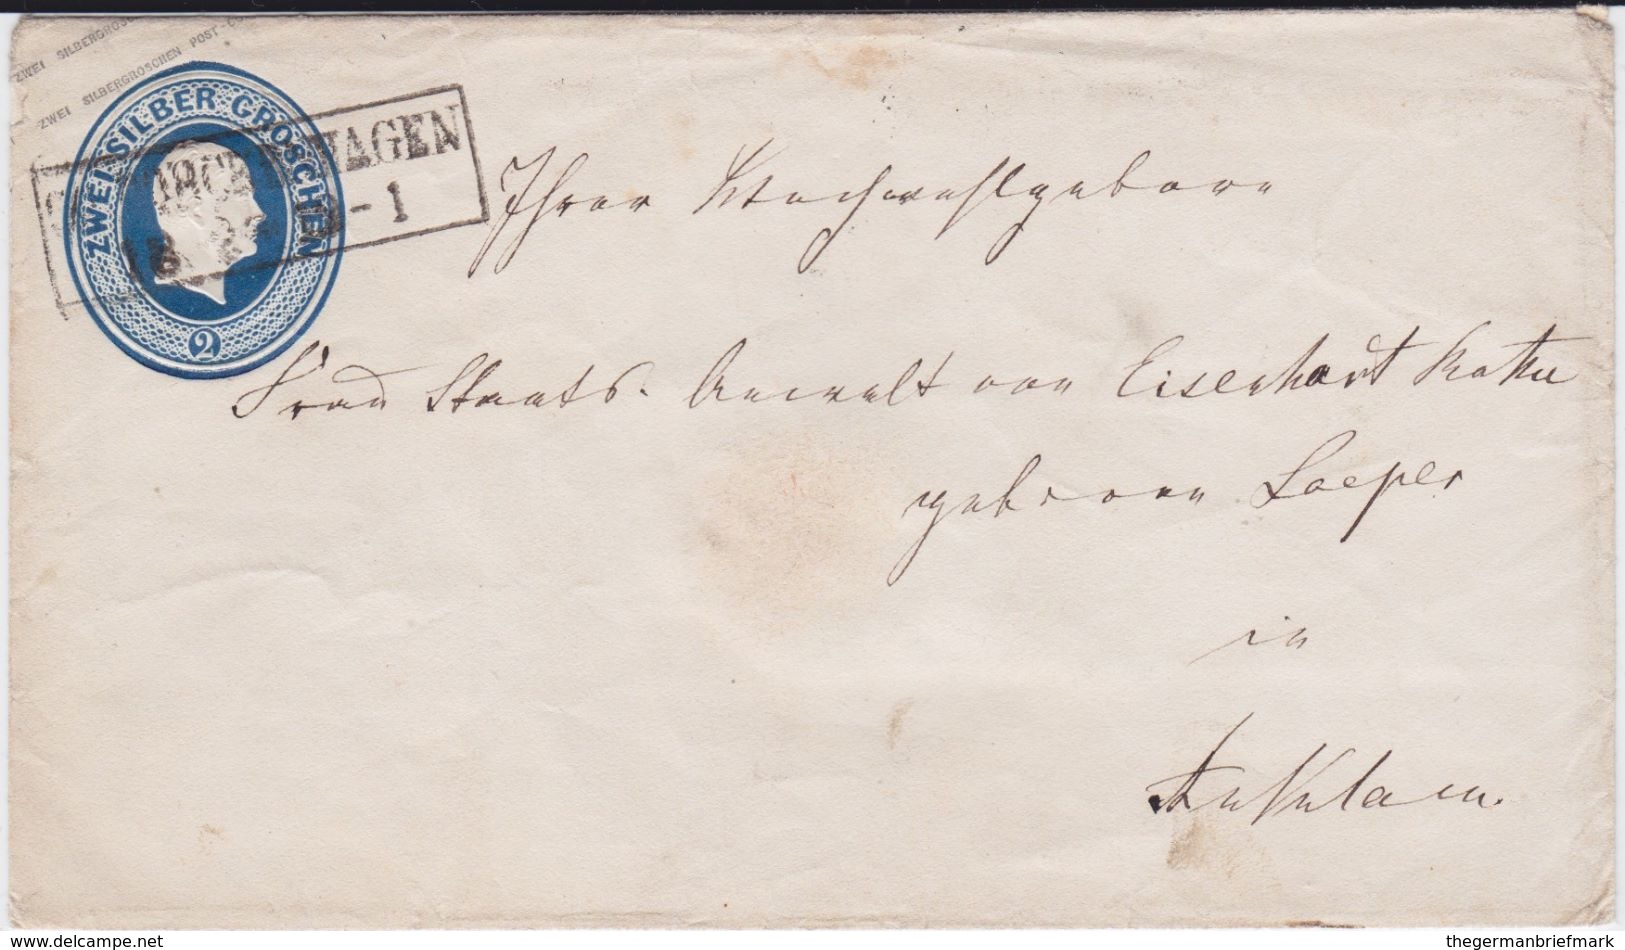 ZWEI SILBERGROSCHEN
ZWEI SILBERGROSCHEN POST-
ZWEI SILBER GROSCHEN
2
HAGEN
- 1
Ihrer Hochwohlgeboren
Frau Staats-Anwalt von Eisenhart Rothe
geborene Loeper
in
Anklam.
www.delcampe.net
thegermanbriefmark